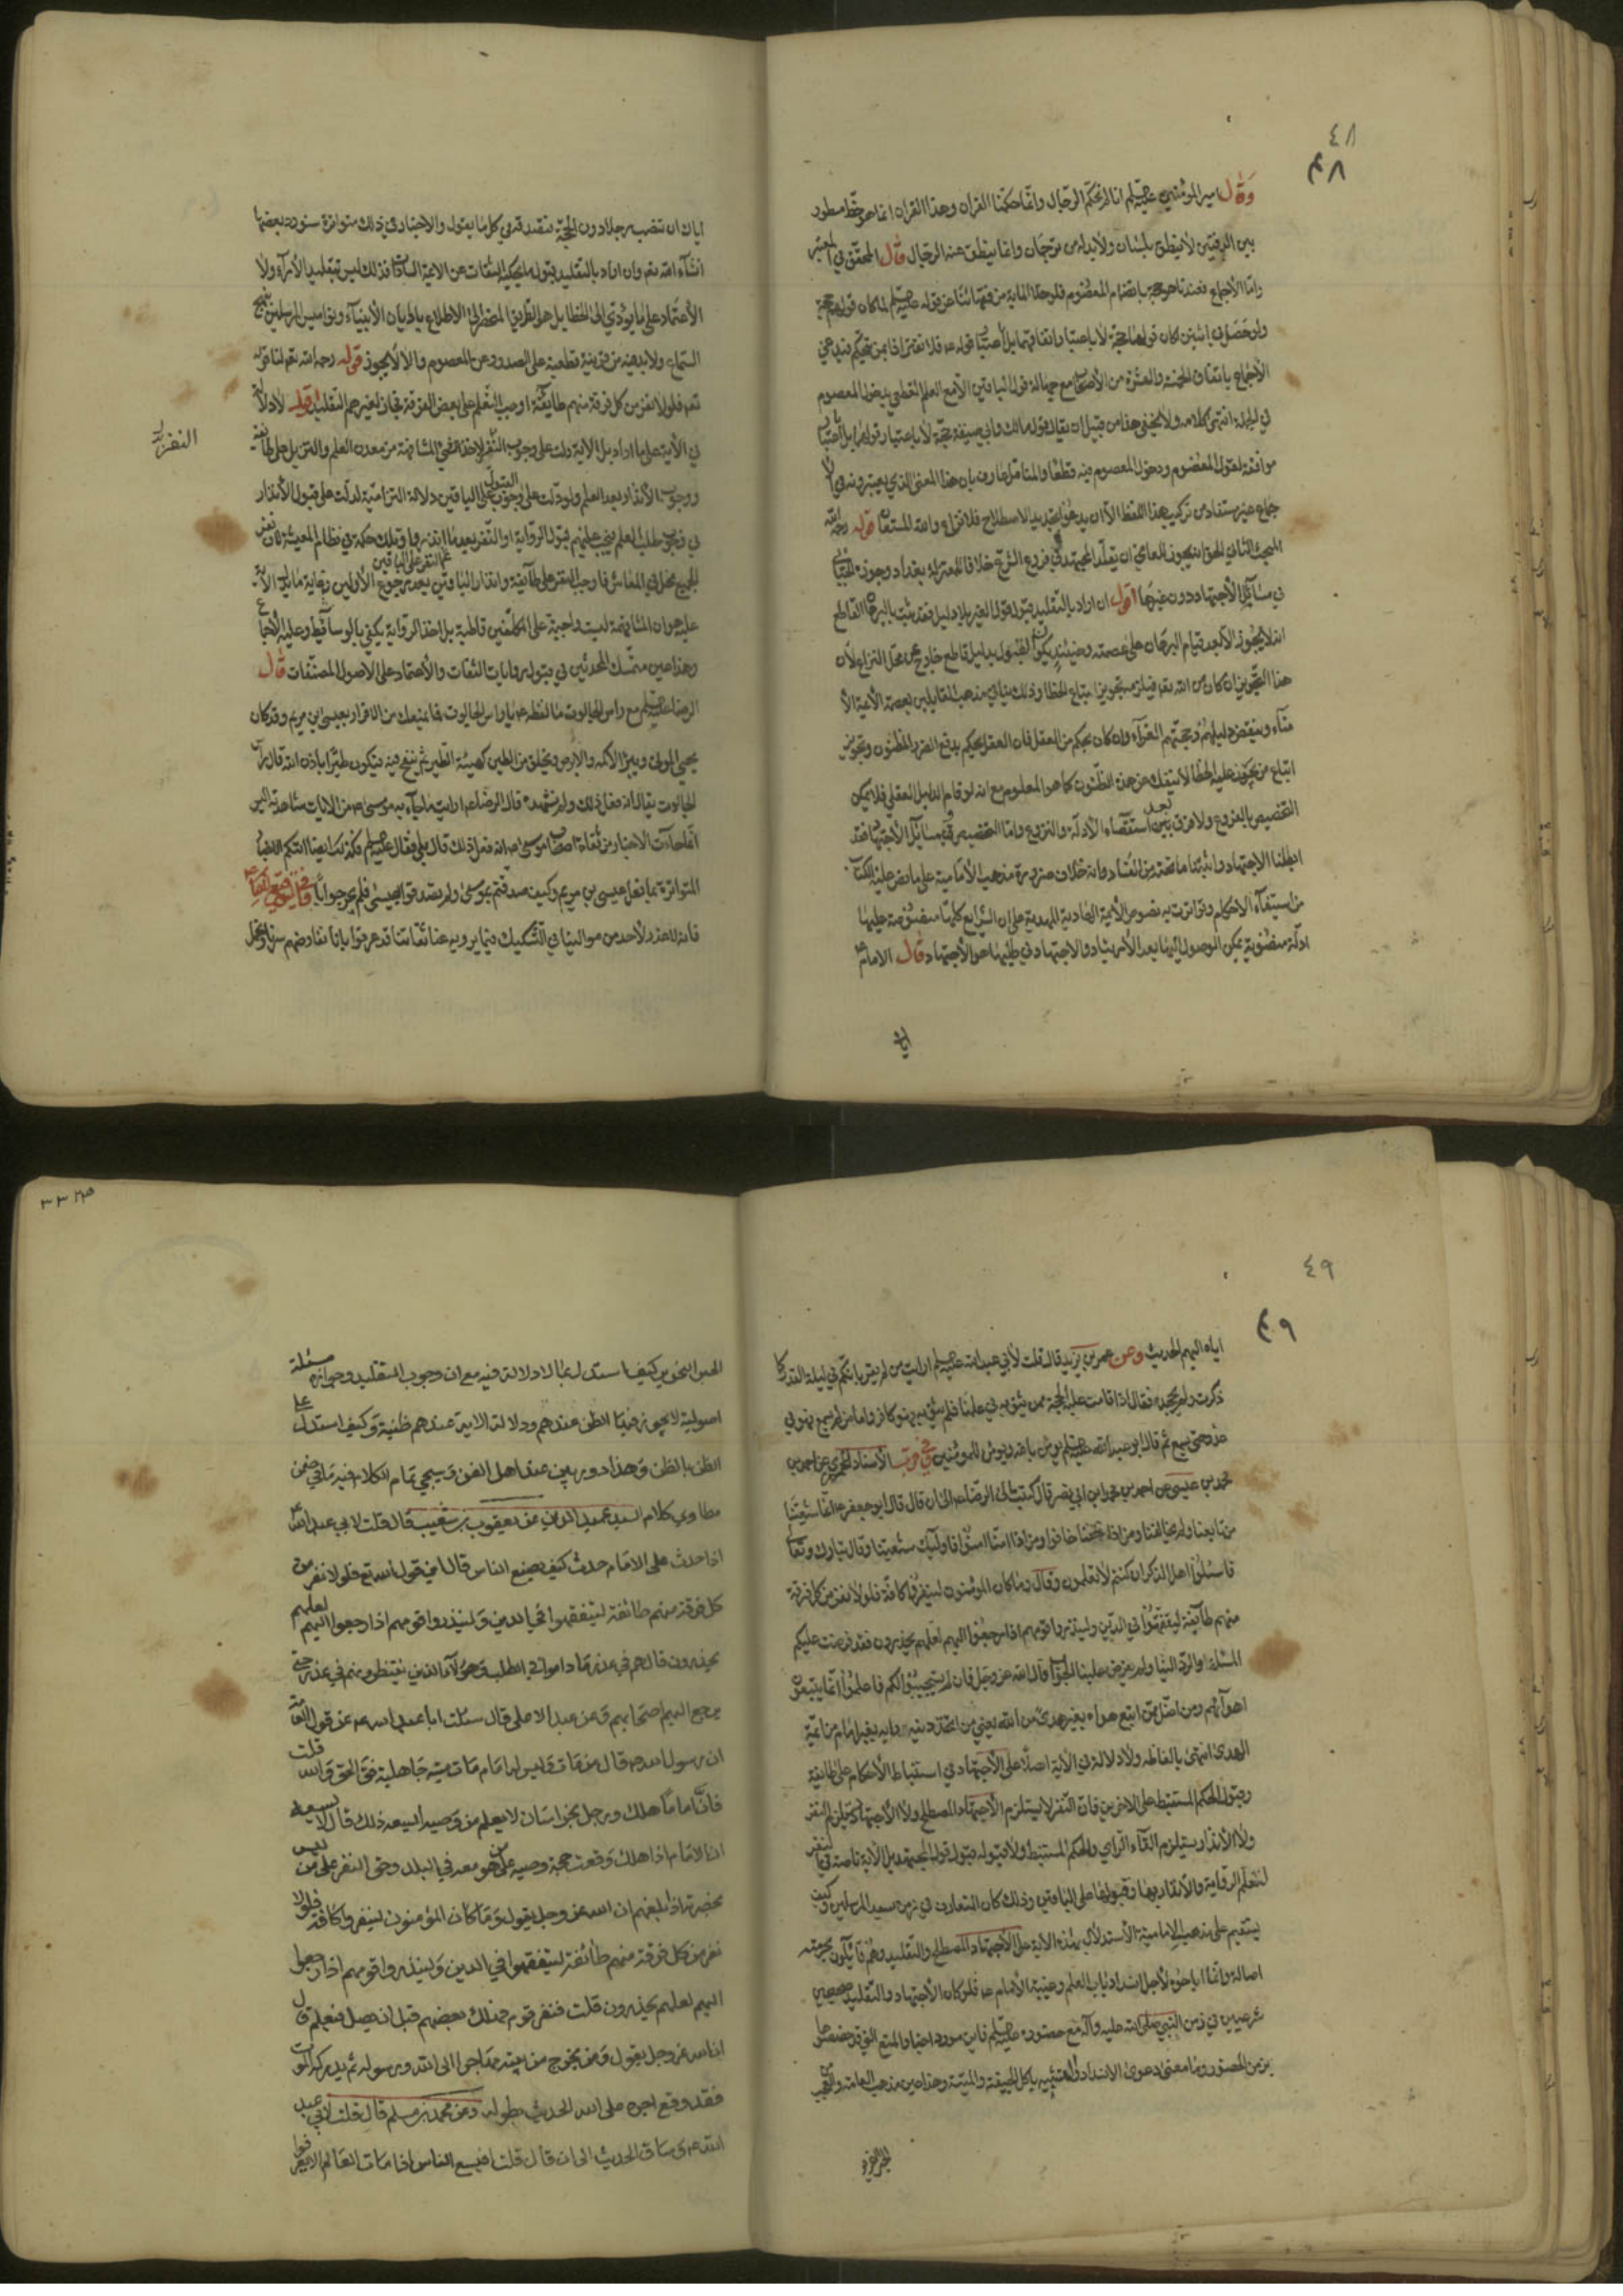 ٤٨
٤٨
وقال امير المؤمنين عليه السلم انا لم نحكم الرجال وانما حكمنا القران وهذا القران انما هو خط مسطور
بين الدفتين لا ينطق بلسان ولا بد له من ترجمان وانما ينطق عنه الرجال قال المحقق في المعتبر
واما الاجماع فعندنا هو حجة بانضمام المعصوم فلو خلا الماية من فقهائنا عن قوله عليه السلم لما كان قولهم حجة
ولو حصل في اثنين لكان قولهما حجة لا باعتبار اتفاقهما بل باعتبار قوله عه فلا تغتر اذا بمن يتحكم فيدعي
الاجماع باتفاق الخمسة والعشرة من الاصحاب مع جهالة قول الباقين الا مع العلم القطعي بدخول المعصوم
في الجملة انتهى كلامه ولا يخفى هذا من قبيل ان يقال قول مالك وابي حنيفة حجة لا باعتبار قولهما بل باعتبار
موافقة لقول المعصوم ودخول المعصوم فيه قطعا والمتامل عارف بان هذا المعنى الذي يعتبرونه في الا
جماع غير مستفاد من تركيب هذا اللفظ الا ان يدعوا بتجديد الاصطلاح فلا نزاع والله المستعان قوله رحمه الله
المبحث الثاني الحق انه يجوز للعامي ان يقلد المجتهد في فروع الشرع خلافا لمعتزلة بغداد وجوزه الجبائي
في مسائل الاجتهاد دون غيرها اقول ان اراد بالتقليد قبول قول الغير بلا دليل فقد ثبت بالبرهان القاطع
انه لا يجوز الا بعد قيام البرهان على عصمته وحينئذ يكون القبول بدليل قاطع خارج عن محل النزاع لان
هذا التجويز ان كان من الله تعه فيلزمه تجويز اتباع الخطا وذلك ينافي مذهب القايلين بعصمة الائمة الا
مناء وينتقض دليلهم وحجتهم الغرآء وان كان بحكم من العقل فان العقل يحكم بدفع الضرر المظنون وتجويز
اتباع من يجوز عليه الخطا لا ينفك عن هذه الظنون كما هو المعلوم مع انه لو قام الدليل العقلي فلا يمكن
التخصيص بالفروع ولا فرق بين بعد استقصاء الادلة والفروع واما التخصيص في مسائل الاجتهاد فقد
ابطلنا الاجتهاد واثبتنا ما تحته من الفساد وانه خلاف ضرورة مذهب الامامية على ما نص عليه الكتاب
من استيفآء الاحكام وتواترت به نصوص الائمة الهادية المهدية على ان الشرايع كلها منصوصة عليها
ادلة منصوبة يمكن الوصول اليها بعد الارشاد والاجتهاد في طلبها هو الاجتهاد قال الامام ع
اياك
اياك ان تنصب رجلا دون الحجة فتصدقه في كل ما يقول والاخبار في ذلك متواترة سنورد بعضها
انشآء الله تعه وان اراد بالتقليد قبول ما يحكيه الثقات عن الائمة السادات فذلك ليس تقليد الاراء ولا
الاعتماد على ما يؤدي الى الخطا بل هو الطريق المنحصر في الاطلاع باديان الانبيآء ونواميس المرسلين بنهج
السماع ولا بد فيه من قرينة قطعية على الصدور عن المعصوم والا لا يجوز قوله رحمه الله تعه لنا قوله
تعه فلولا نفر من كل فرقة منهم طايفة اوجب التعلم على بعض الفرقة فجاز لغيرهم التقليد اقول لا دلالة
في الاية على ما اراد بل الاية دلت على وجوب النفر لاخذ العلم في المشافهة من معدن العلم والتنزيل على طائفة
ووجوب الانذار بعد العلم ولو دلت على وجوب القبول على الباقين دلالة التزامية لدلت على قبول الانذار
النفر
في وجوب طلب العلم فيجب عليهم قبول الرواية او النفر بعد ما انذر بها وتلك حكمة في نظام المعيشة فان نفر
الجميع مخل في المعاش فاوجب النفر على طآيفة وانذار الباقين بعد رجوع الاولين ثم النفر على الباقين
عليه هو ان المشافهة ليست واجبة على المكلفين قاطبة بل اخذ الرواية يكفي بالوسائط وعليه الاجماع
وهذا عين متمسك المحدثين في قبول روايات الثقات والاعتماد على الاصول المصنفات قال
الرضا عليه السلم مع راس الجالوت ما لفظه عه يا راس الجالوت فما يمنعك من الاقرار بعيسى ابن مريم وقد كان
يحيي الموتى ويبرئ الاكمه والابرص ويخلق من الطين كهيئة الطير ثم ينفخ فيه فيكون طيرا باذن الله قال راس
الجالوت يقال انه فعل ذلك ولم نشهده قال الرضا عه ارايت ما جآء به موسى عه من الايات شاهدته اليس
انما جاءت الاخبار من ثقات اصحاب موسى انه فعل ذلك قال بلى فقال عليه السلم فكذلك ايضا اتتكم الاخبار
المتواترة بما فعل عيسى بن مريم وكيف صدقتم بموسى ولم تصدقوا بعيسى فلم يحر جوابا وفي توقيع
فانه لا عذر لاحد من موالينا في التشكيك فيما يرويه عنا ثقاتنا قد عرفوا بانا نفاوضهم سرنا ونحمل
٤٩
٤٩
اياه اليهم الحديث وعن عمر بن يزيد قال قلت لابي عبد الله عليه السلم ارايت من لم يقر بانكم في ليلة القدر كما
ذكرت ولم يجحده فقال اذا قامت عليه الحجة ممن يثق به في علمنا فلم يثق به فهو كافر واما من لم يسمع فهو في
عذر حتى يسمع ثم قال ابو عبد الله عليه السلم يؤمن بالله ويؤمن للمؤمنين وفي قرب الاسناد للحميري عن احمد بن
محمد بن عيسى عن احمد بن محمد ابن ابي نصر قال كتبت الى الرضا عه الى ان قال قال ابو جعفر ع انما شيعتنا
من تابعنا ولم يخالفنا ومن اذا خفنا خاف ومن اذا امنا امن فاولئك شيعتنا وقال تبارك وتعالى
فاسئلوا اهل الذكر ان كنتم لا تعلمون وقال وما كان المؤمنون لينفروا كافة فلولا نفر من كل فرقة
منهم طآيفة ليتفقهوا في الدين ولينذروا قومهم اذا رجعوا اليهم لعلهم يحذرون فقد فرضت عليكم
المسئلة والرد الينا ولم يفرض علينا الجواب قال الله عز وجل فان لم يستجيبوا لكم فاعلموا انما يتبعون
اهوآئهم ومن اضل ممن اتبع هواه بغير هدى من الله يعني من اتخذ دينه رايه بغير امام من ائمة
الهدى انتهى بالفاظه ولا دلالة في الاية اصلا على الاجتهاد في استنباط الاحكام على طايفة
وقبول الحكم المستنبط على الاخرين فان النفر لا يستلزم الاجتهاد المصطلح ولا الاجتهاد يستلزم النفر
ولا الانذار يستلزم القآء الراي والحكم المستنبط ولا قبوله قبول قول المجتهد بل الاية ناصة في النفر
لتعلم الرواية والانذار بها وقبولها على الباقين وذلك كان المتعارف في زمن سيد المرسلين وكيف
يستقيم على مذهب الامامية الاستدلال بهذه الاية على الاجتهاد المصطلح والتقليد وهم قآئلون بحرمته
اصالة وانما اباحوه لاجل انسداد باب العلم وغيبة الامام عه فلو كان الاجتهاد والتقليد صحيحين
شرعيين في زمن النبي صلى الله عليه وآله مع حضوره عليه السلم فاين مورد اخبار المنع التي قد خصصوها
بزمن الحضور وما معنى دعوى الانسداد والتشبيه باكل الجيفة والميتة وهذا عين مذهب العامة والعجب
٣٣
الحسن اليخوي كيف استدل بما لا دلالة فيه مع ان وجوب التقليد وجوازه مسئلة
اصولية لا يجوز فيها الظن عندهم ودلالة الاية عندهم ظنية وكيف استدل على
الظن بالظن وهذا دور بين عند اهل الفن وسيجي تمام الكلام فيه ما في ضمن
مطاوي كلام السيد عميد الدين عن يعقوب بن شعيب قال قلت لابي عبد الله ع
اذا حدث على الامام حدث كيف يصنع الناس قال اين قول الله تع فلولا نفر من
كل فرقة منهم طائفة ليتفقهوا في الدين ولينذروا قومهم اذا رجعوا اليهم لعلهم
يحذرون قال هم في عذر ما داموا في الطلب وهؤلاء الذين ينتظرونهم في عذر حتى
يرجع اليهم اصحابهم وعن عبد الاعلى قال سئلت ابا عبد الله عه عن قول العامة
ان رسول الله ص قال من مات وليس له امام مات ميتة جاهلية فق الحق والله قلت
فان اماما هلك ورجل بخراسان لا يعلم من وصيه لم يسعه ذلك قال لا يسعه
ان الامام اذا هلك وقعت حجة وصيه على من هو معه في البلد وحق النفر على من ليس
بحضرته اذا بلغهم ان الله عز وجل يقول وما كان المؤمنون لينفروا كافة فلولا
نفر من كل فرقة منهم طائفة ليتفقهوا في الدين ولينذروا قومهم اذا رجعوا
اليهم لعلهم يحذرون قلت فنفر قوم فهلك بعضهم قبل ان يصل فيعلم قال
ان الله عز وجل يقول ومن يخرج من بيته مهاجرا الى الله ورسوله ثم يدركه الموت
فقد وقع اجره على الله الحديث بطوله وعن محمد بن مسلم قال قلت لابي عبد
الله عه وساق الحديث الى ان قال قلت افيسع الناس اذا مات العالم الا يعرفوا